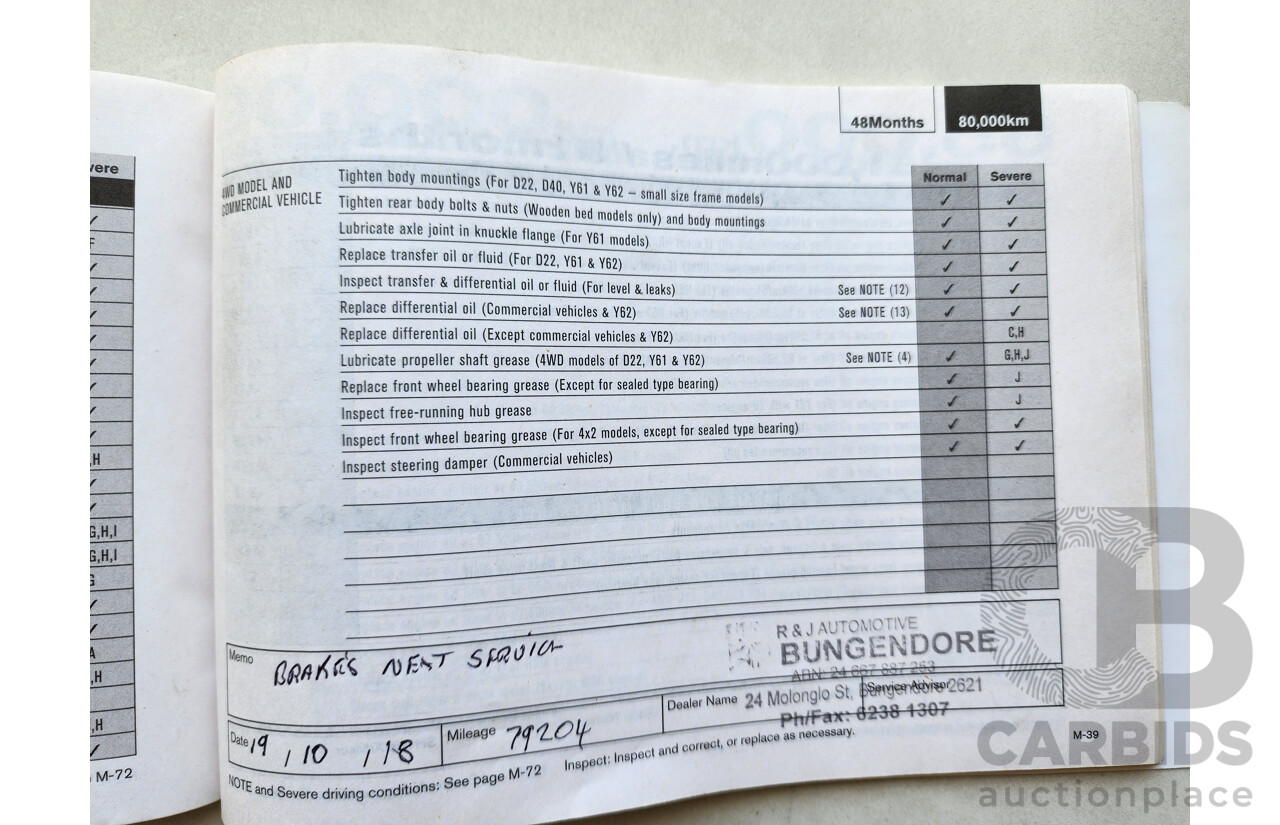 48Months 80,000km
Normal Severe
4WD MODEL AND
COMMERCIAL VEHICLE
Tighten body mountings (For D22, D40, Y61 & Y62 – small size frame models) ✓ ✓
Tighten rear body bolts & nuts (Wooden bed models only) and body mountings ✓ ✓
Lubricate axle joint in knuckle flange (For Y61 models) ✓ ✓
Replace transfer oil or fluid (For D22, Y61 & Y62) ✓ ✓
Inspect transfer & differential oil or fluid (For level & leaks) See NOTE (12) ✓ ✓
Replace differential oil (Commercial vehicles & Y62) See NOTE (13) ✓ ✓
Replace differential oil (Except commercial vehicles & Y62) C,H
Lubricate propeller shaft grease (4WD models of D22, Y61 & Y62) See NOTE (4) ✓ G,H,J
Replace front wheel bearing grease (Except for sealed type bearing) ✓ J
Inspect free-running hub grease ✓ J
Inspect front wheel bearing grease (For 4x2 models, except for sealed type bearing) ✓ ✓
Inspect steering damper (Commercial vehicles) ✓ ✓
Memo BRAKES NEXT SERVICE
R & J AUTOMOTIVE
BUNGENDORE
ABN: 24 667 887 263
Dealer Name 24 Molonglo St, Bungendore 2621
Service Advisor
Ph/Fax: 6238 1307
Date 19 / 10 / 18 Mileage 79204
NOTE and Severe driving conditions: See page M-72 Inspect: Inspect and correct, or replace as necessary.
M-39
vere
✓
F
✓
✓
✓
✓
✓
✓
✓
,H
✓
✓
G,H,I
G,H,I
G
✓
✓
A
,H
,H
✓
M-72
CB
CARBIDS
auctionplace